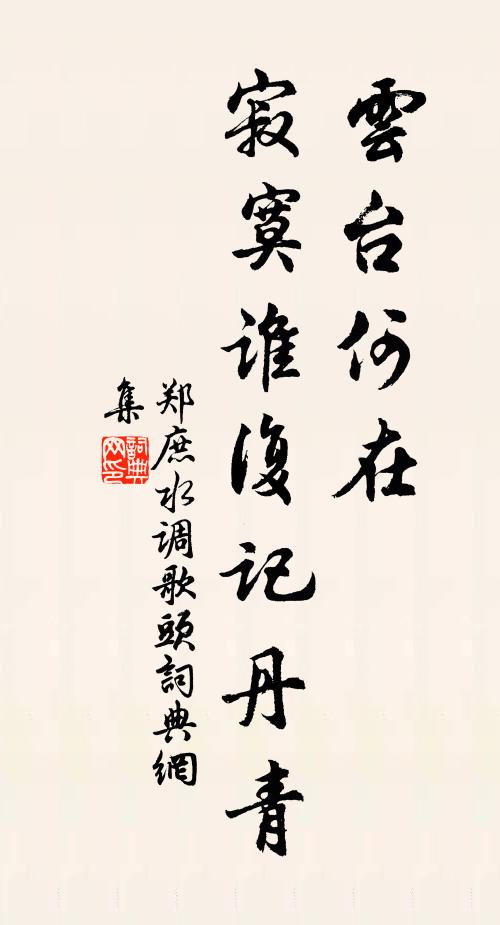 雲台何在
寂寞谁復记丹青
郑庶水调歌頭詞典網
集
詞典
网印